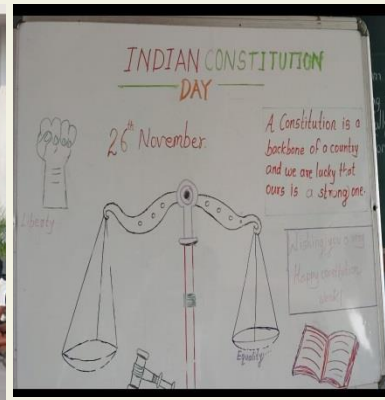 INDIAN CONSTITUTION
DAY
26th November
A Constitution is a
backbone of a country
and we are lucky that
ours is a strong one.
Liberty
Wishing you a
Happy constitution
Equality